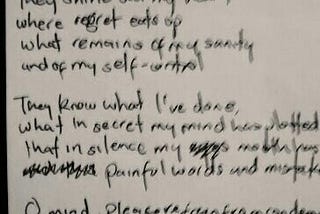 They shine
where regret eats up
what remains of my sanity
and of my self-control
They know what I've done,
what in secret my mind has plotted
that in silence my mouth has
painful words and mistake
O mind, please